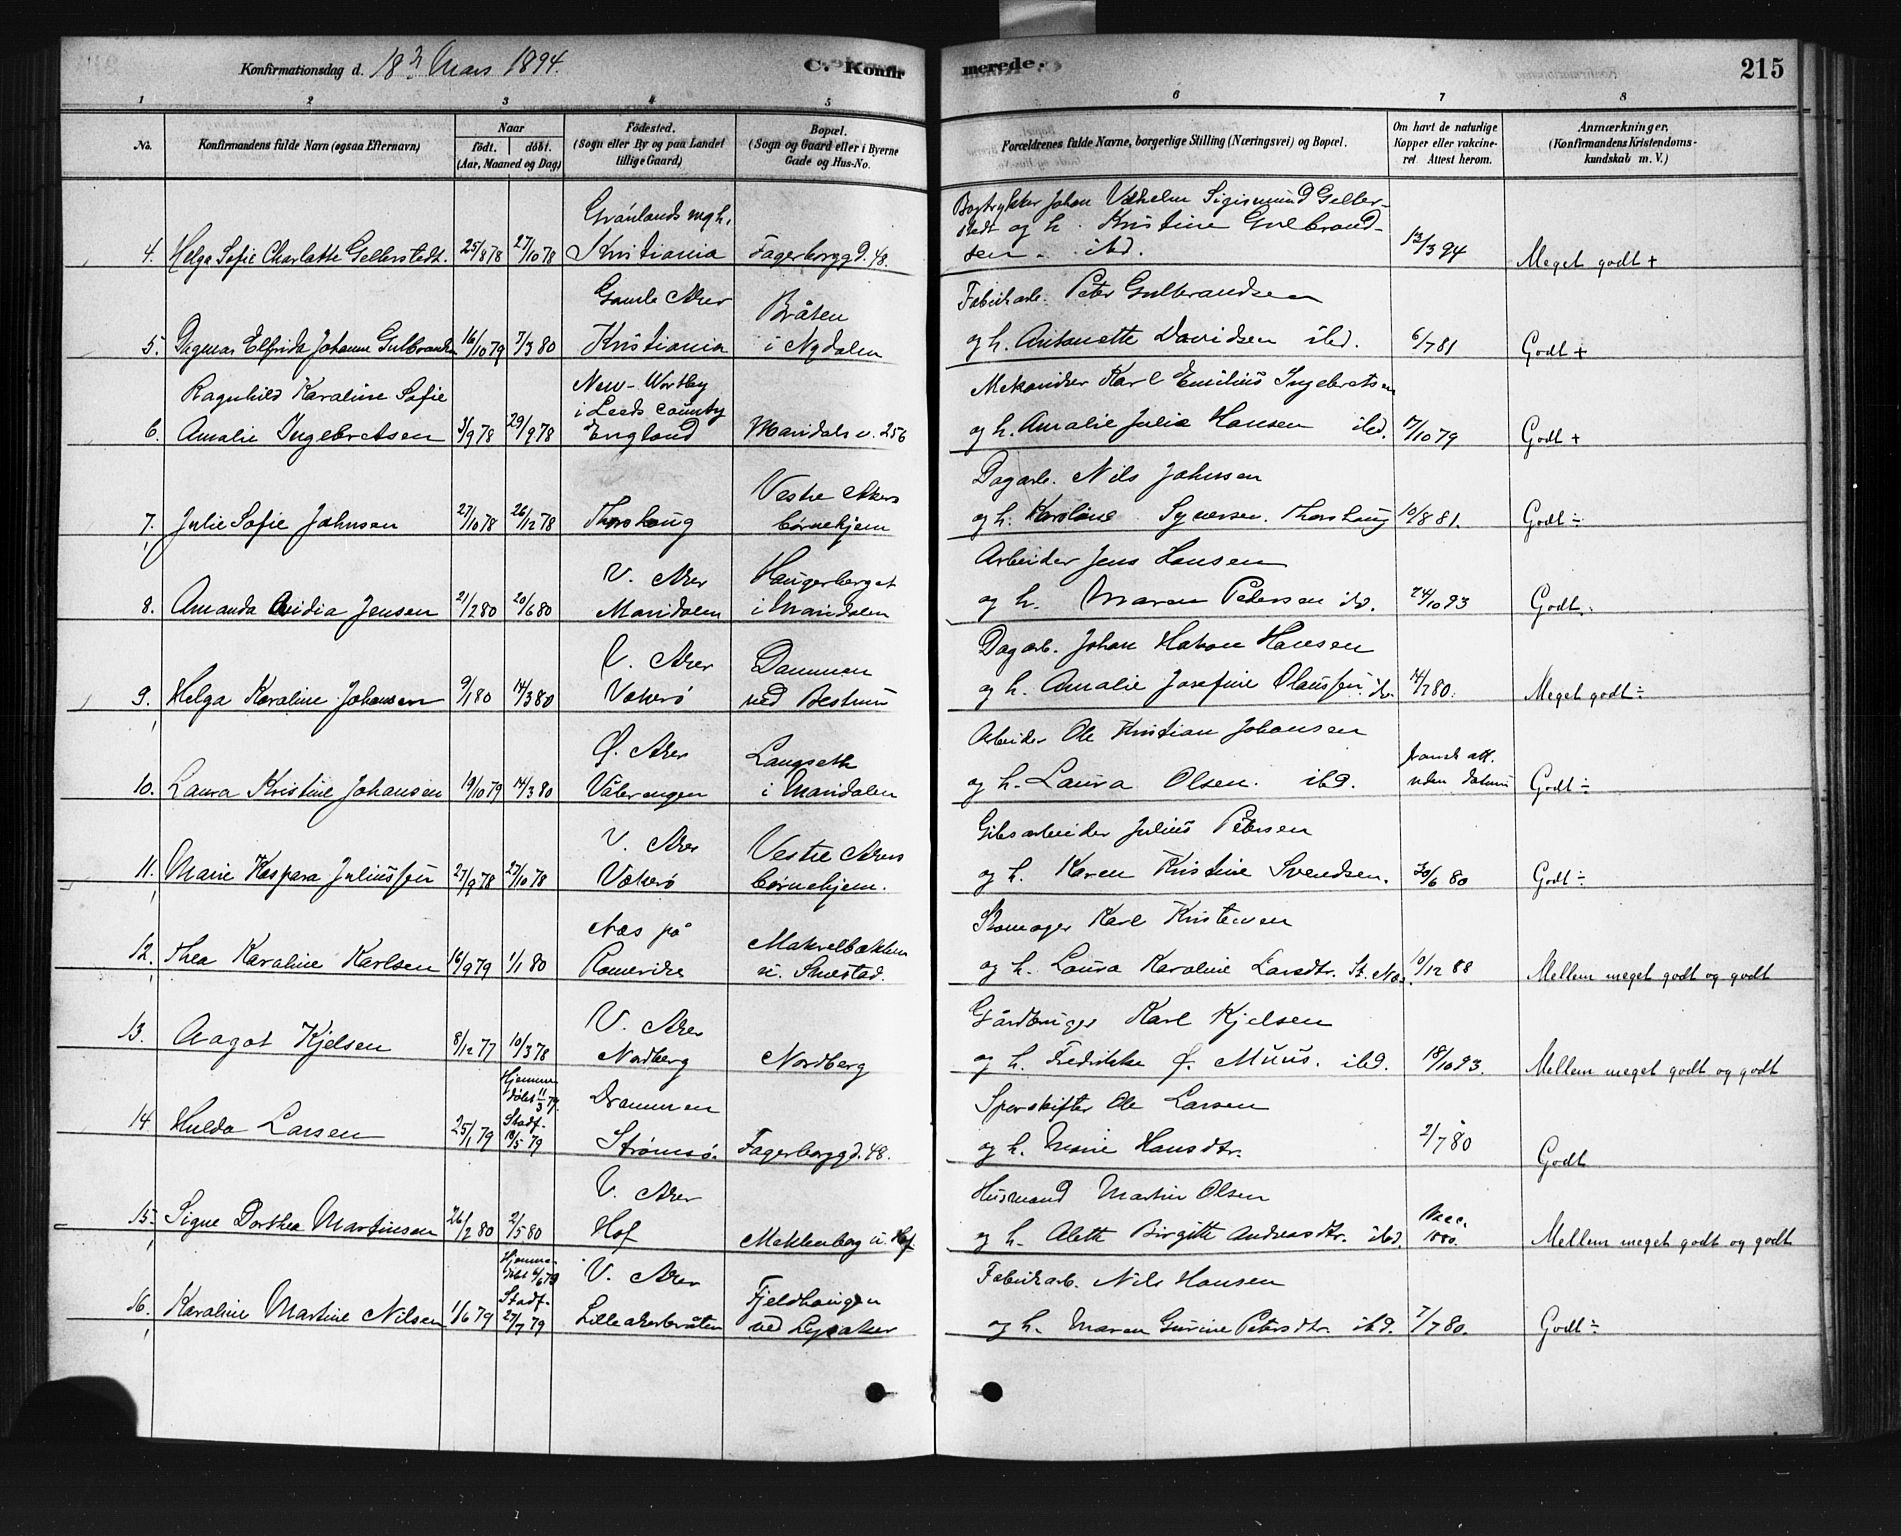 Konfirmationsdag d. 18n Mars 1894.
C. Konfirmerede.
215
1 2 3 4 5 6 7 8
No.
Konfirmandens fulde Navn (ogsaa Efternavn)
Naar
født. døbt.
(Aar, Maaned og Dag)
Fødested.
(Sogn eller By og paa Landet
tillige Gaard)
Bopæl.
(Sogn og Gaard eller i Byerne
Gade og Hus-No.
Forældrenes fulde Navne, borgerlige Stilling (Næringsvei) og Bopæl.
Om havt de naturlige
Kopper eller vakcine-
ret Attest herom.
Anmærkninger.
(Konfirmandens Kristendoms-
kundskab m. V.)
Grønlands mgh.
4. Helga Sofie Charlotte Gellerstedt. 25/8 78 27/10 78 Kristiania Fagerborggd. 48.
Bogtrykker Johan Vilhelm Sigismund Geller-
stedt og h. Kristine Gulbrand-
sen. ibd. 13/3 94 Meget godt +
Gamle Aker Bråten
5. Dagmar Elfrida Johanne Gulbrandsen 16/10 79 7/3 80 Kristiania i Nydalen
Fabrikarb. Peter Gulbrandsen
og h. Antonette Davidsen ibd. 6/7 81 Godt +
Ragnhild Karoline Sofie New-Wortley
i Leeds county
6. Amalie Ingebretsen 3/9 78 29/9 78 England Maridals v. 256
Mekaniker Karl Emilius Ingebretsen
og h. Amalie Julie Hansen ibd. 17/10 79 Godt +
Vestre Akers
7. Julie Sofie Johnsen 27/10 78 26/12 78 Thorshaug børnehjem
Dagarb. Nils Johnsen
og h. Karoline Syversen. Thorshaug 10/8 81. Godt ÷
V. Aker Haugerberget
8. Amanda Jensen 21/2 80 20/6 80 Maridalen i Maridalen
Arbeider Jens Hansen
og h. Maren Pedersen ibd. 24/10 93 Godt ÷
V. Aker Dammen
9. Helga Karoline Johansen 9/1 80 14/3 80 Vækerø ved Bestum
Dagarb. Johan Hakon Hansen
og h. Amalie Josefine Olaussen. ib. 14/7 80. Meget godt ÷
Ø. Aker Langseth
10. Laura Kristine Johansen 19/10 79 14/3 80 Vålerengen i Maridalen
Arbeider Ole Kristian Johansen
og h. Laura Olsen. ibd. att. uden datum Godt ÷
V. Aker Vestre Akers
11. Marie Kaspara Juliussen 27/9 78 27/10 78 Vækerø børnehjem.
Gibsarbeider Julius Petersen
og h. Karen Kristine Svendsen. 30/6 80 Godt ÷
Næs på Makrelbækken
12. Thea Karoline Karlsen 16/9 79 1/1 80 Romerike u. Smestad.
Skomager Karl Kristensen
og h. Laura Karoline Larsdtr. St. Næs. 10/12 88 Mellem meget godt og godt
V. Aker
13. Aagot Kjelsen 8/12 77 10/3 78 Nordberg Nordberg
Gårdbruger Karl Kjelsen
og h. Fredrikke Ø. Muus. ibd. 18/10 93. Mellem meget godt og godt
Hjemme-
døbt 11/3 79. Drammen
Stadf.
14 Hulda Larsen 25/1 79 18/5 79 Strømsø. Fagerborggd. 48.
Sporskifter Ole Larsen
og h. Marie Hansdtr. 2/7 80 Godt
V. Aker
15. Signe Dorthea Martinsen 26/2 80 2/5 80 Hof Meklenborg u. Hof.
Husmand Martin Olsen
og h. Alette Birgitte Andreasdtr. ibd. Vacc. 1880. Mellem meget godt og godt
Hjemme-
døbt 6/6 79 V. Aker Fjeldhaugen
Stadf.
16. Karoline Martine Nilsen 1/6 79 27/7 79 Lilleakerbråten ved Lysaker
Fabrikarb. Nils Hansen
og h. Maren Gurine Petersdtr. ibd. 7/7 80. Godt ÷